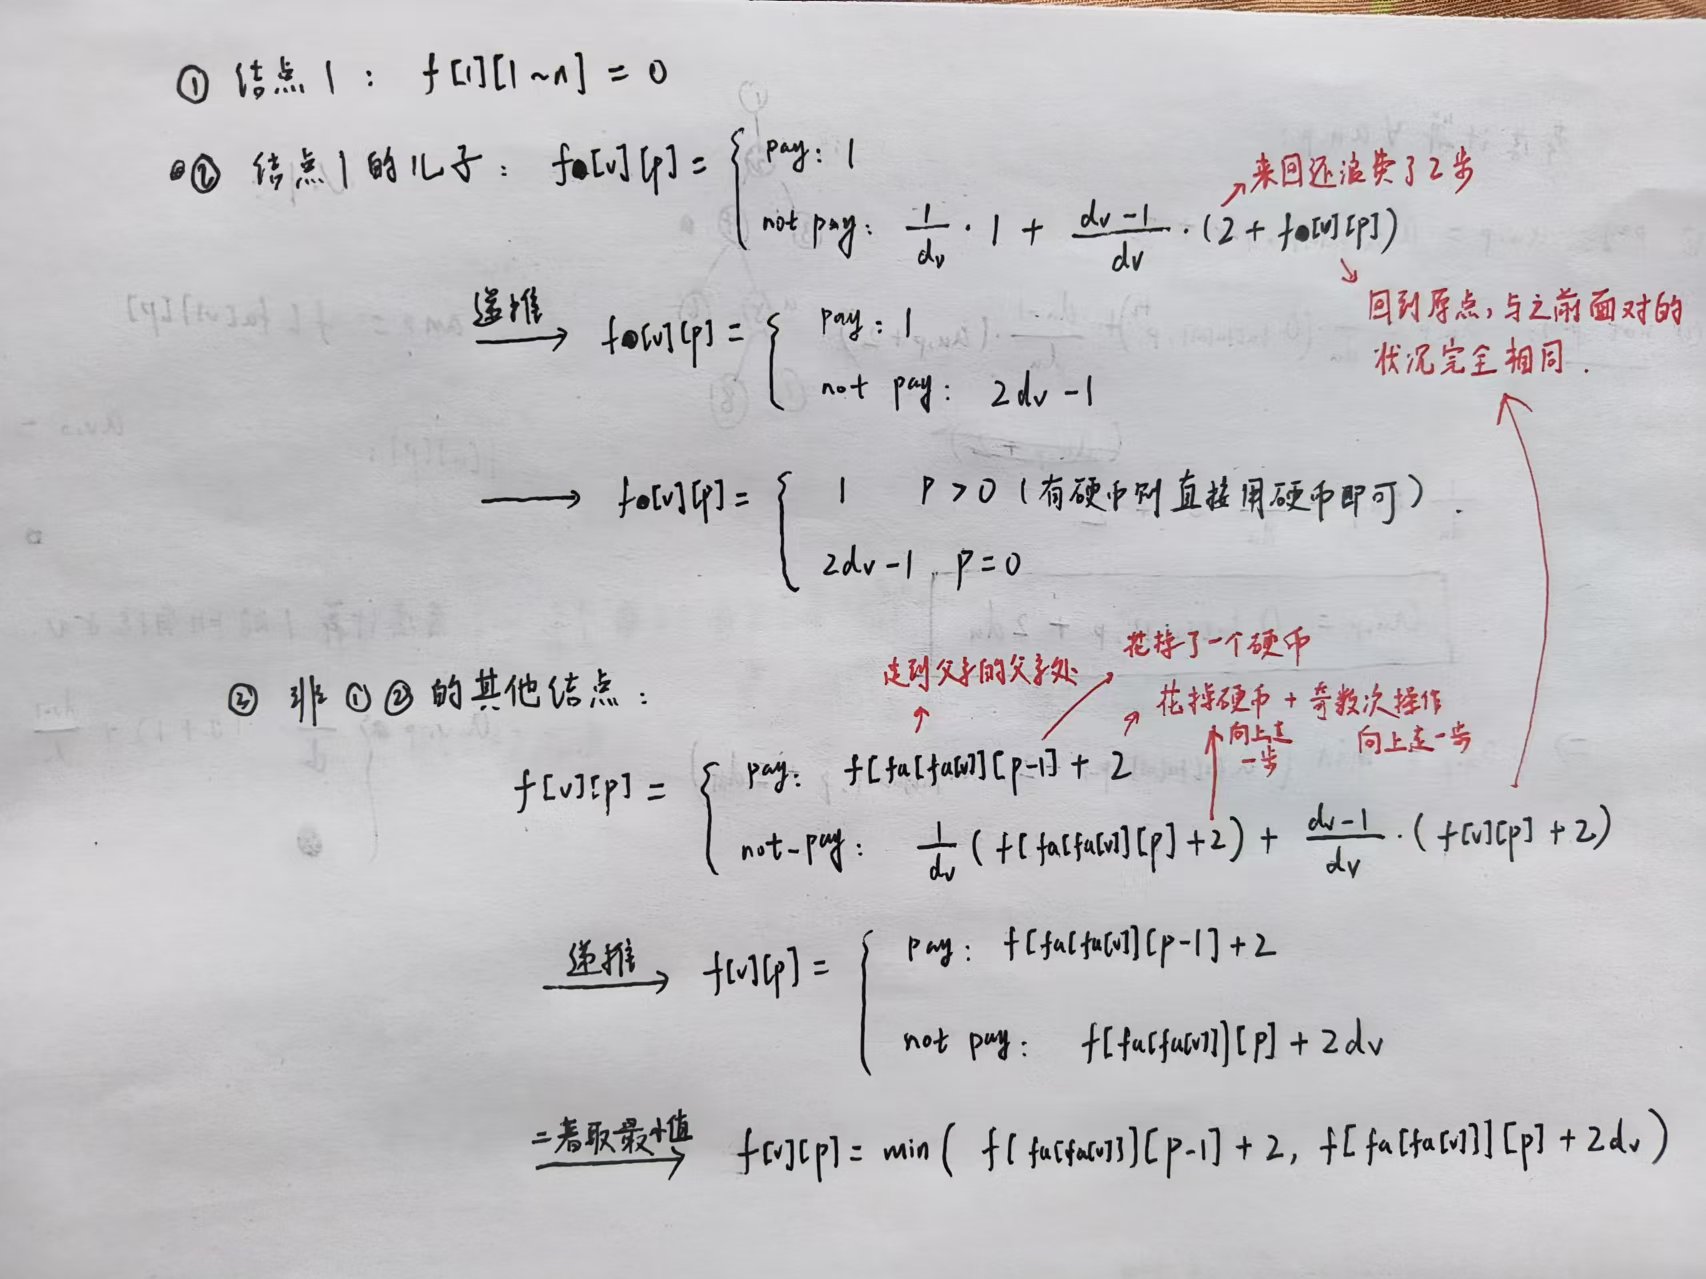 ① 结点1： f[1][1~n] = 0
② 结点1的儿子： f[v][p] = { pay: 1
not pay: 1/dv · 1 + (dv-1)/dv · (2 + f[v][p])
来回还浪费了2步
回到原点,与之前面对的
状况完全相同.
递推 → f[v][p] = { pay: 1
not pay: 2dv-1
→ f[v][p] = { 1 P>0 (有硬币则直接用硬币即可).
2dv-1 P=0
花掉了一个硬币
走到父亲的父亲处
③ 非①②的其他结点：
花掉硬币 + 奇数次操作
向上走一步
向上走一步
f[v][p] = { pay: f[fa[fa[v]]][p-1] + 2
not-pay: 1/dv (f[fa[fa[v]]][p] + 2) + (dv-1)/dv · (f[v][p] + 2)
递推 → f[v][p] = { pay: f[fa[fa[v]]][p-1] + 2
not pay: f[fa[fa[v]]][p] + 2dv
二者取最小值 → f[v][p] = min( f[fa[fa[v]]][p-1] + 2, f[fa[fa[v]]][p] + 2dv)